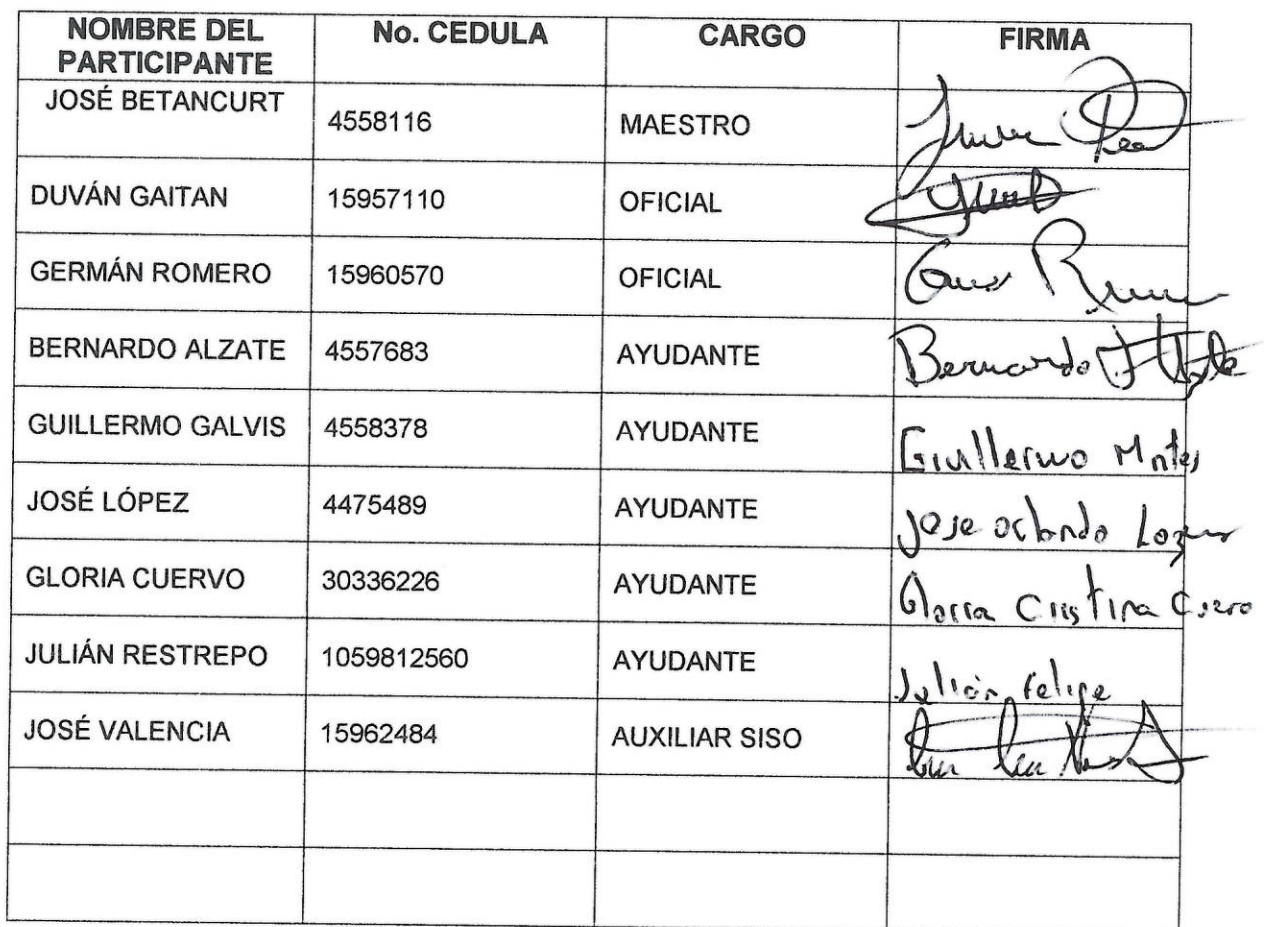 NOMBRE DEL PARTICIPANTE No. CEDULA CARGO FIRMA
JOSÉ BETANCURT 4558116 MAESTRO
DUVÁN GAITAN 15957110 OFICIAL
GERMÁN ROMERO 15960570 OFICIAL
BERNARDO ALZATE 4557683 AYUDANTE Bernardo
GUILLERMO GALVIS 4558378 AYUDANTE Guillermo
JOSÉ LÓPEZ 4475489 AYUDANTE Jose
GLORIA CUERVO 30336226 AYUDANTE Gloria Cristina
JULIÁN RESTREPO 1059812560 AYUDANTE Julián Felipe
JOSÉ VALENCIA 15962484 AUXILIAR SISO